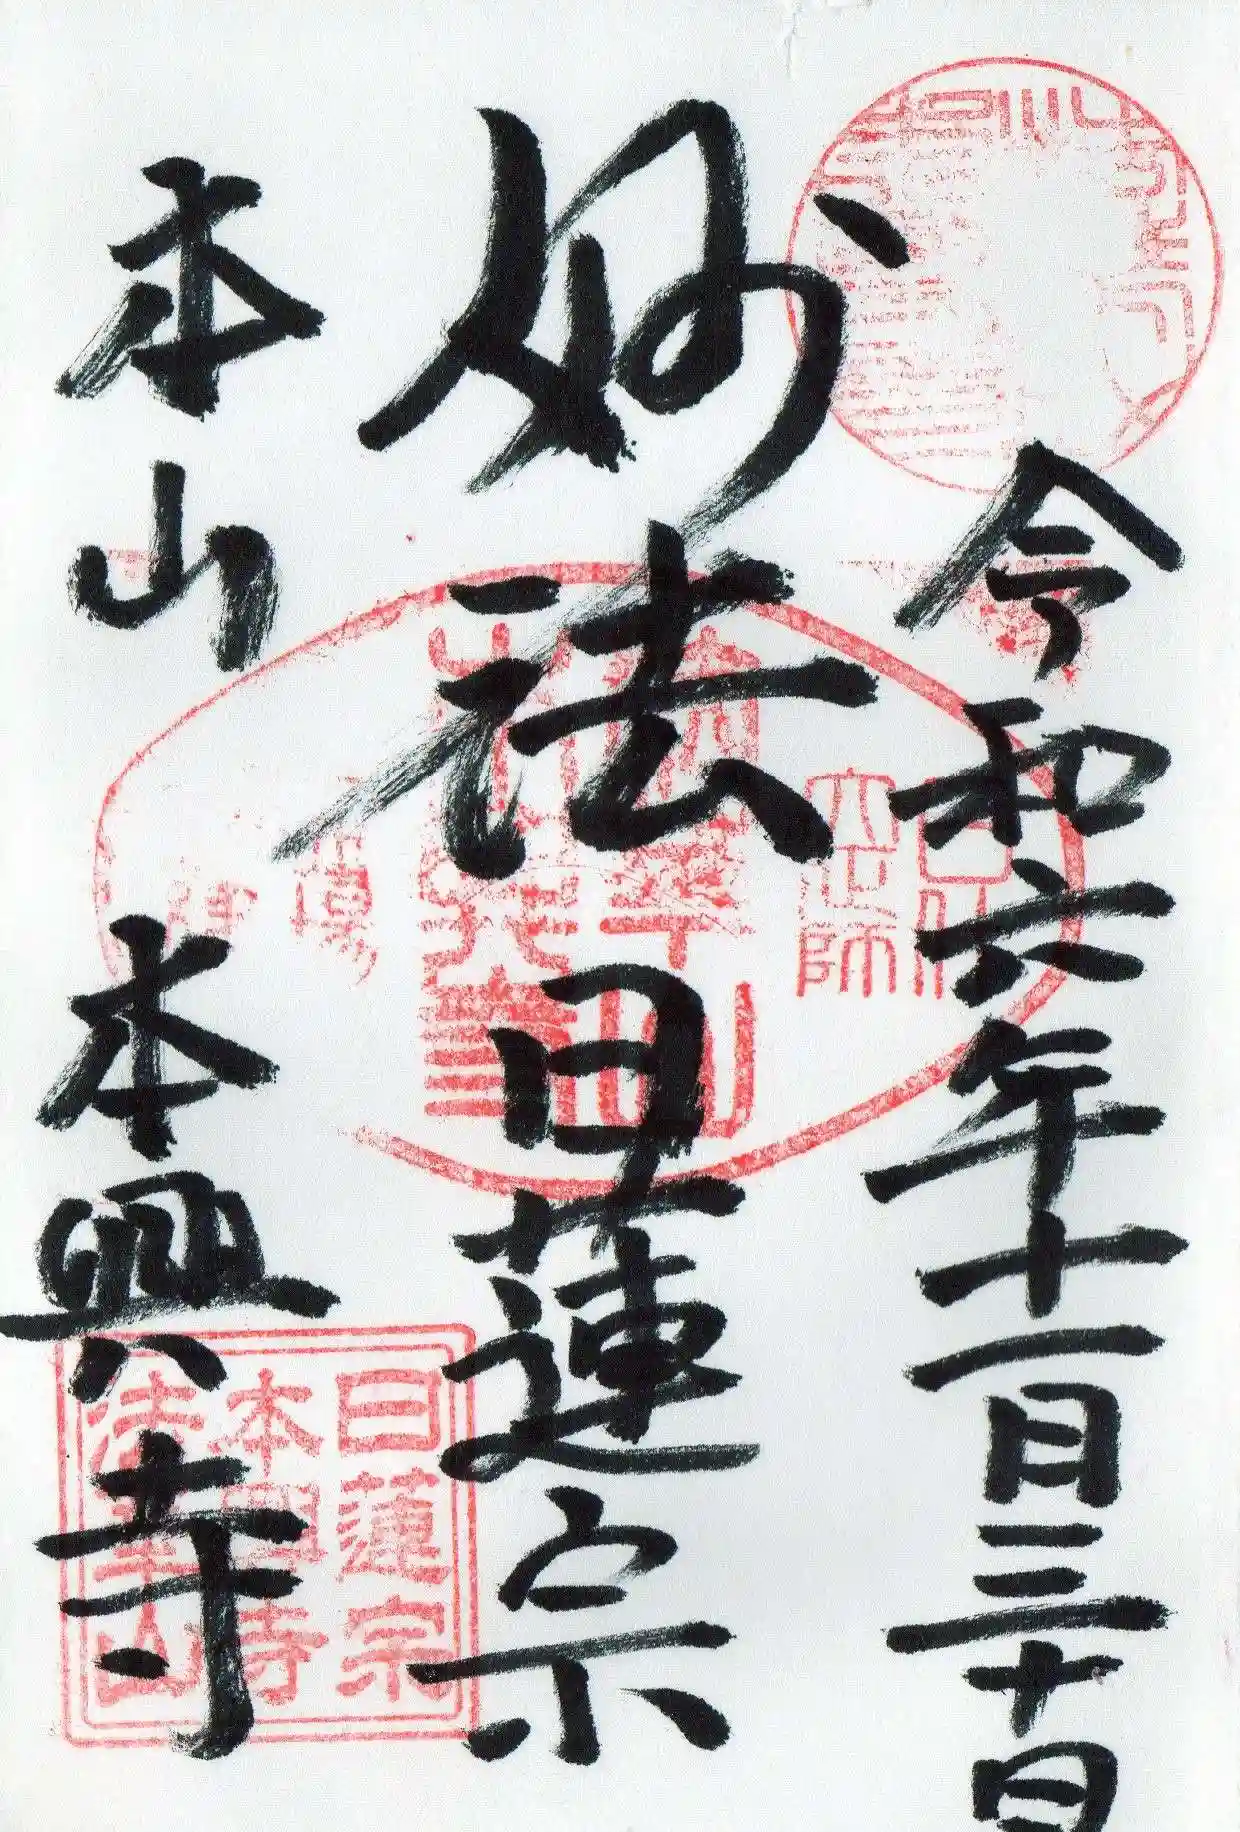 令和六年十一月三十日
妙法
日蓮宗
本山
本興寺
日蓮宗
本興寺
法華山